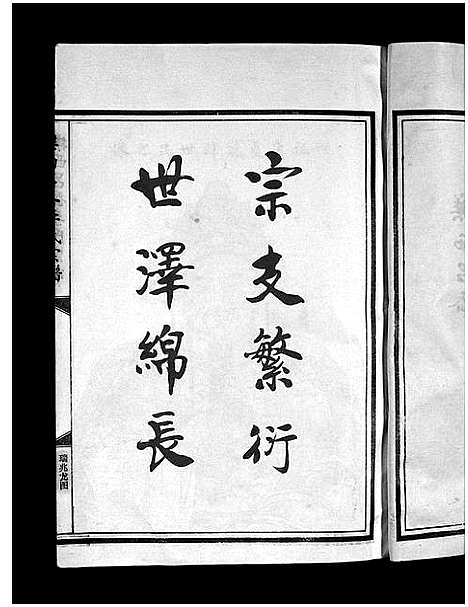 宗支繁衍
世澤綿長
氏宗譜
瑞兆龙图